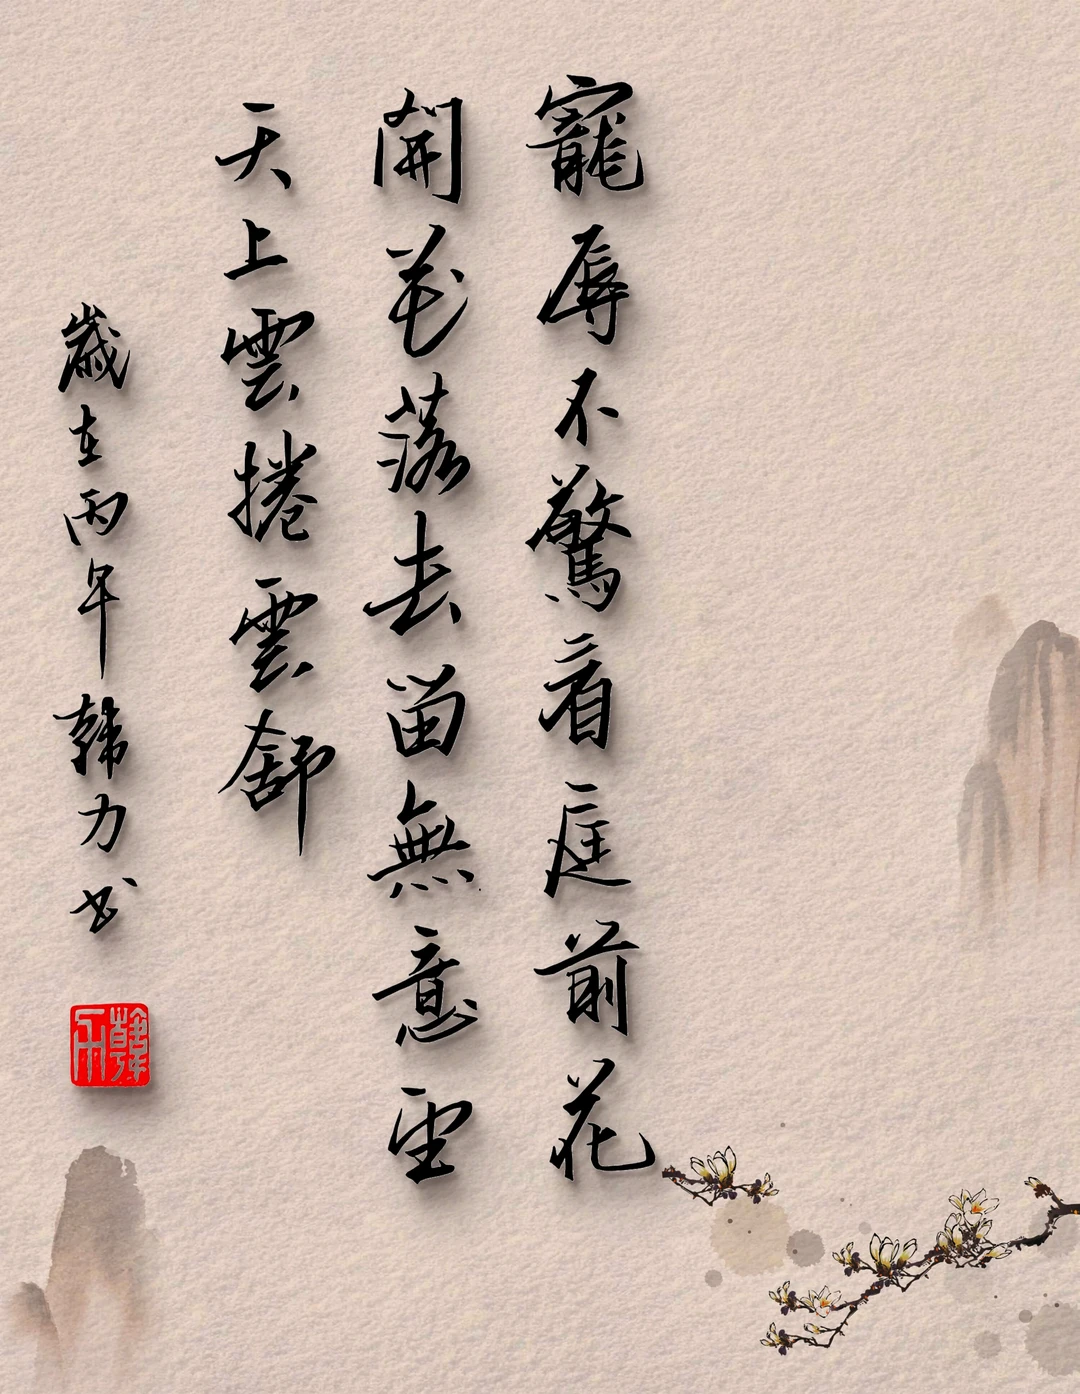 寵辱不驚看庭前花
開花落去留無意望
天上雲捲雲舒
歲在丙年韓力书